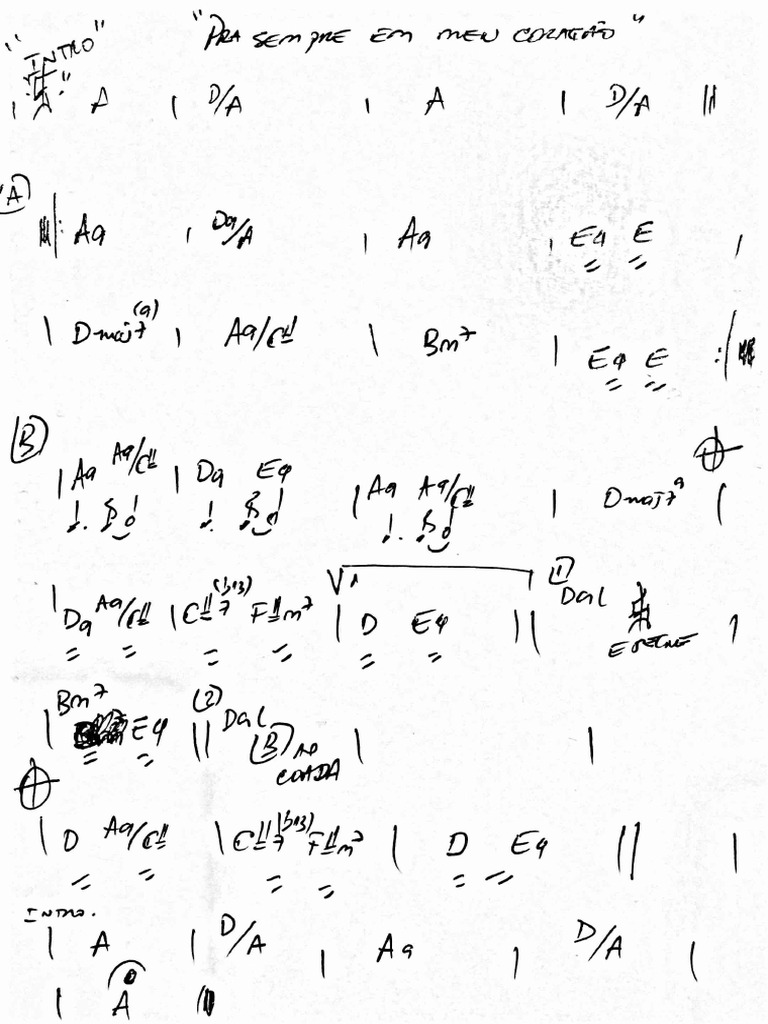 "PRA SEMPRE EM MEU CORAÇÃO"
"INTRO"
| A | D/A | A | D/A ||
"A"
||: A9 | D9/A | A9 | E4 E |
| Dmaj7(9) | A9/C# | Bm7 | E4 E :||
B
| A9 A9/C# | D9 E4 | A9 A9/C# | Dmaj79 |
| D9 A9/C# | C#7(b13) F#m7 | D E4 || 1 Dal 𝄋 |
| Bm7 E4 || 2 Dal B AO CODA | |
| D A9/C# | C#7(b13) F#m7 | D E4 || |
INTRO.
| A | D/A | A9 | D/A |
| A ||